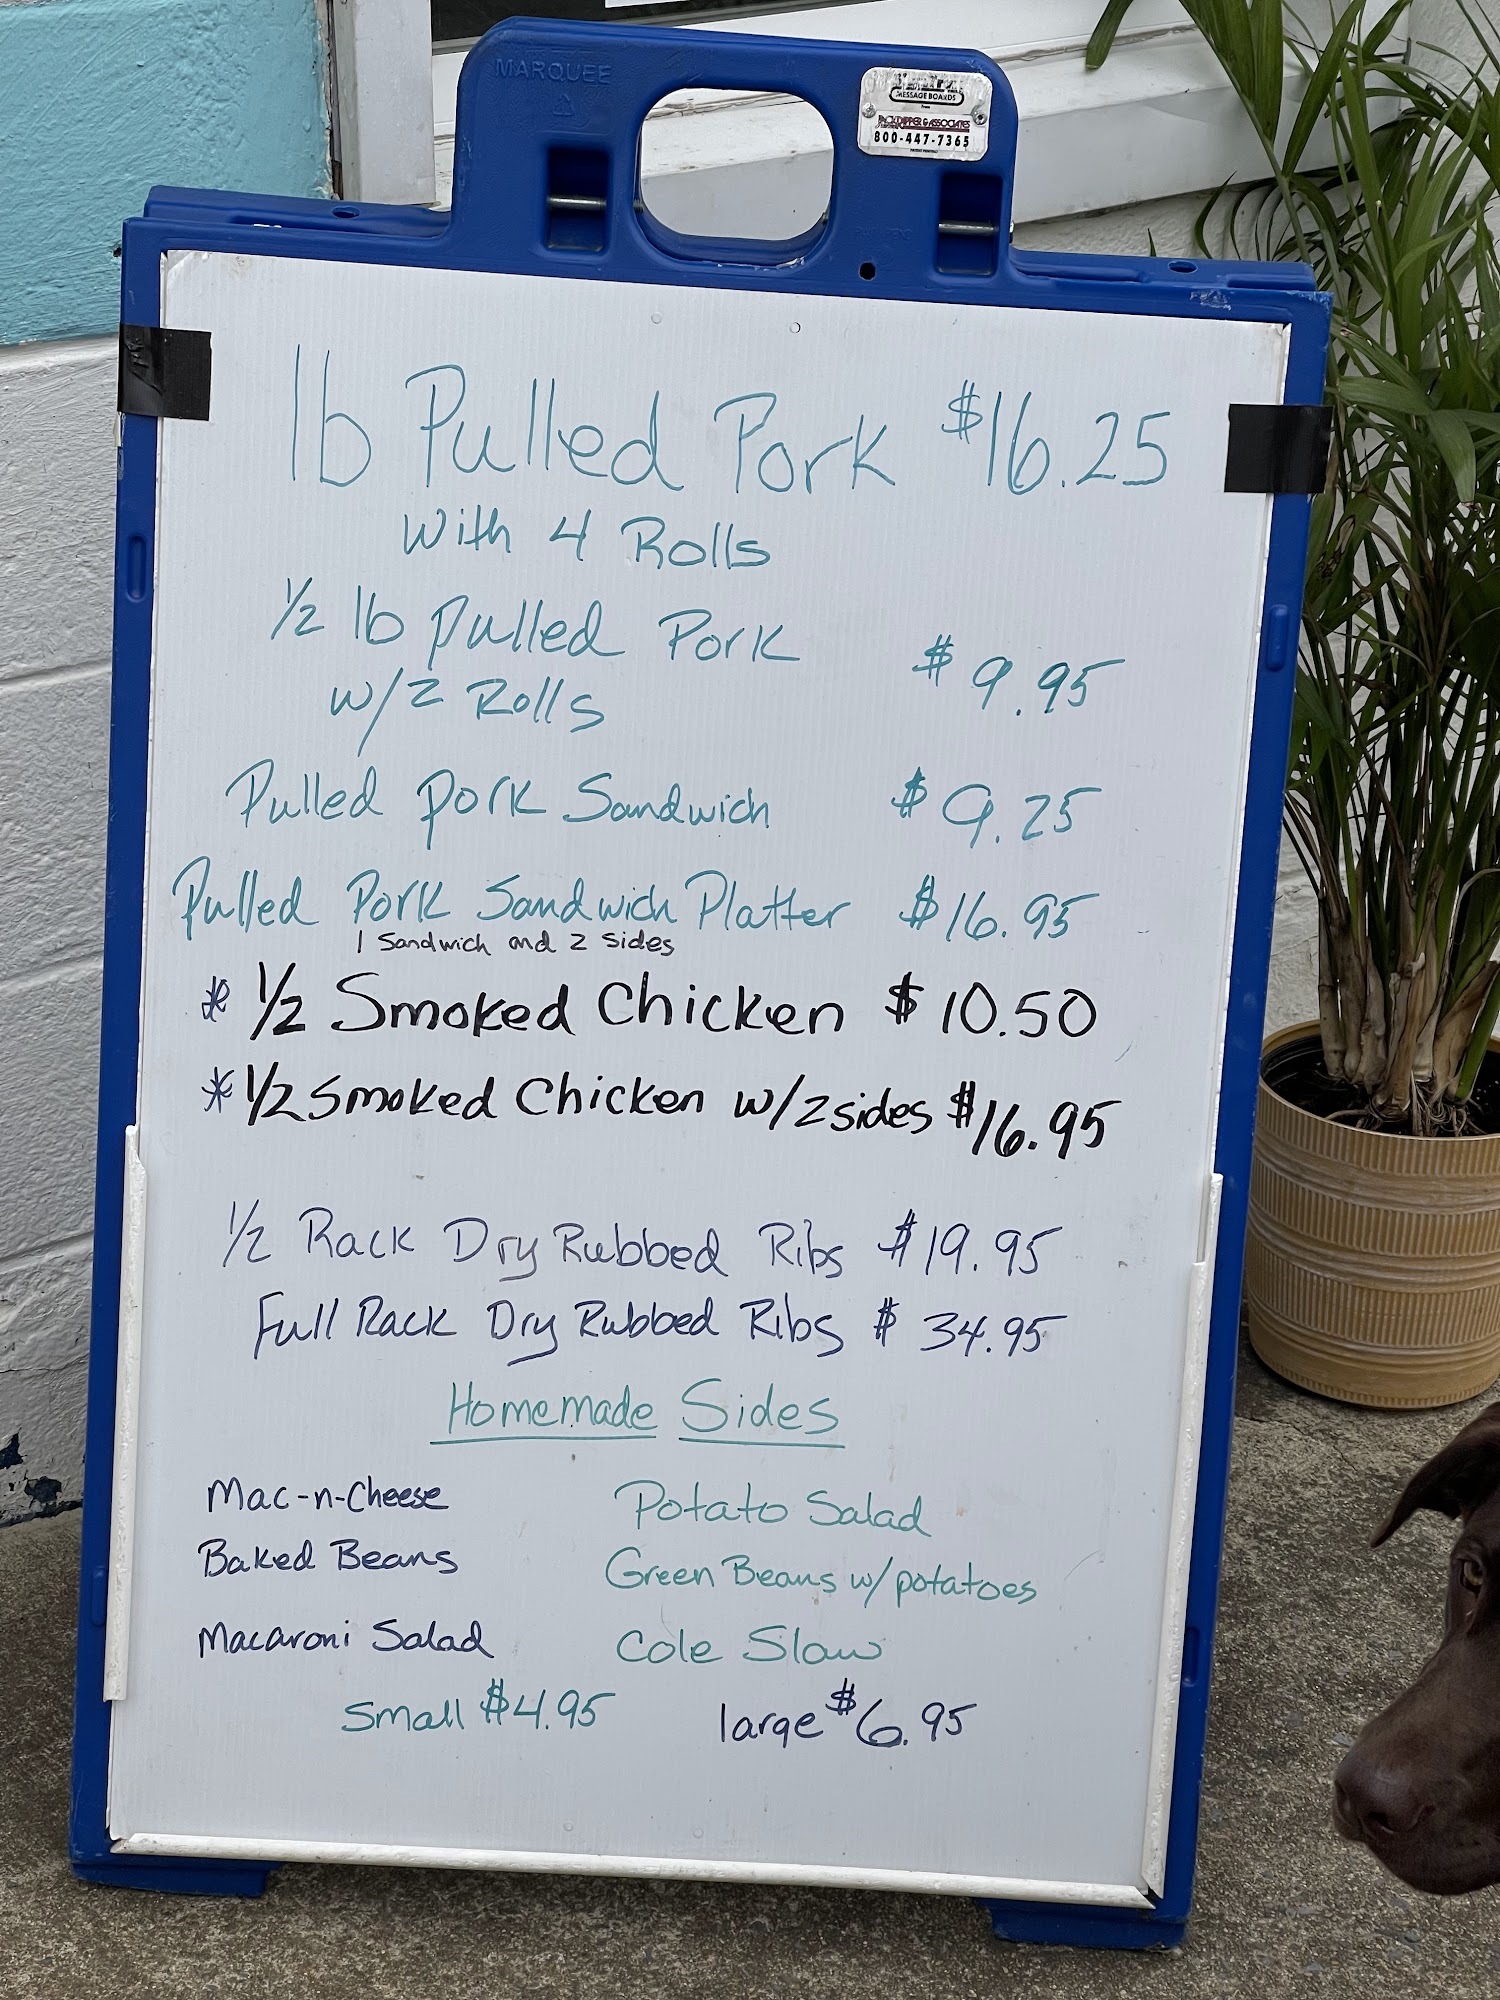 MARQUEE
MESSAGE BOARDS
800-447-7365
1lb Pulled Pork $16.25
with 4 Rolls
1/2 lb Pulled Pork
w/2 Rolls $9.95
Pulled Pork Sandwich $9.25
Pulled Pork Sandwich Platter $16.95
1 Sandwich and 2 sides
* 1/2 Smoked Chicken $10.50
* 1/2 Smoked Chicken w/2sides $16.95
1/2 Rack Dry Rubbed Ribs $19.95
Full Rack Dry Rubbed Ribs $34.95
Homemade Sides
Mac-n-Cheese Potato Salad
Baked Beans Green Beans w/potatoes
Macaroni Salad Cole Slaw
Small $4.95 large $6.95